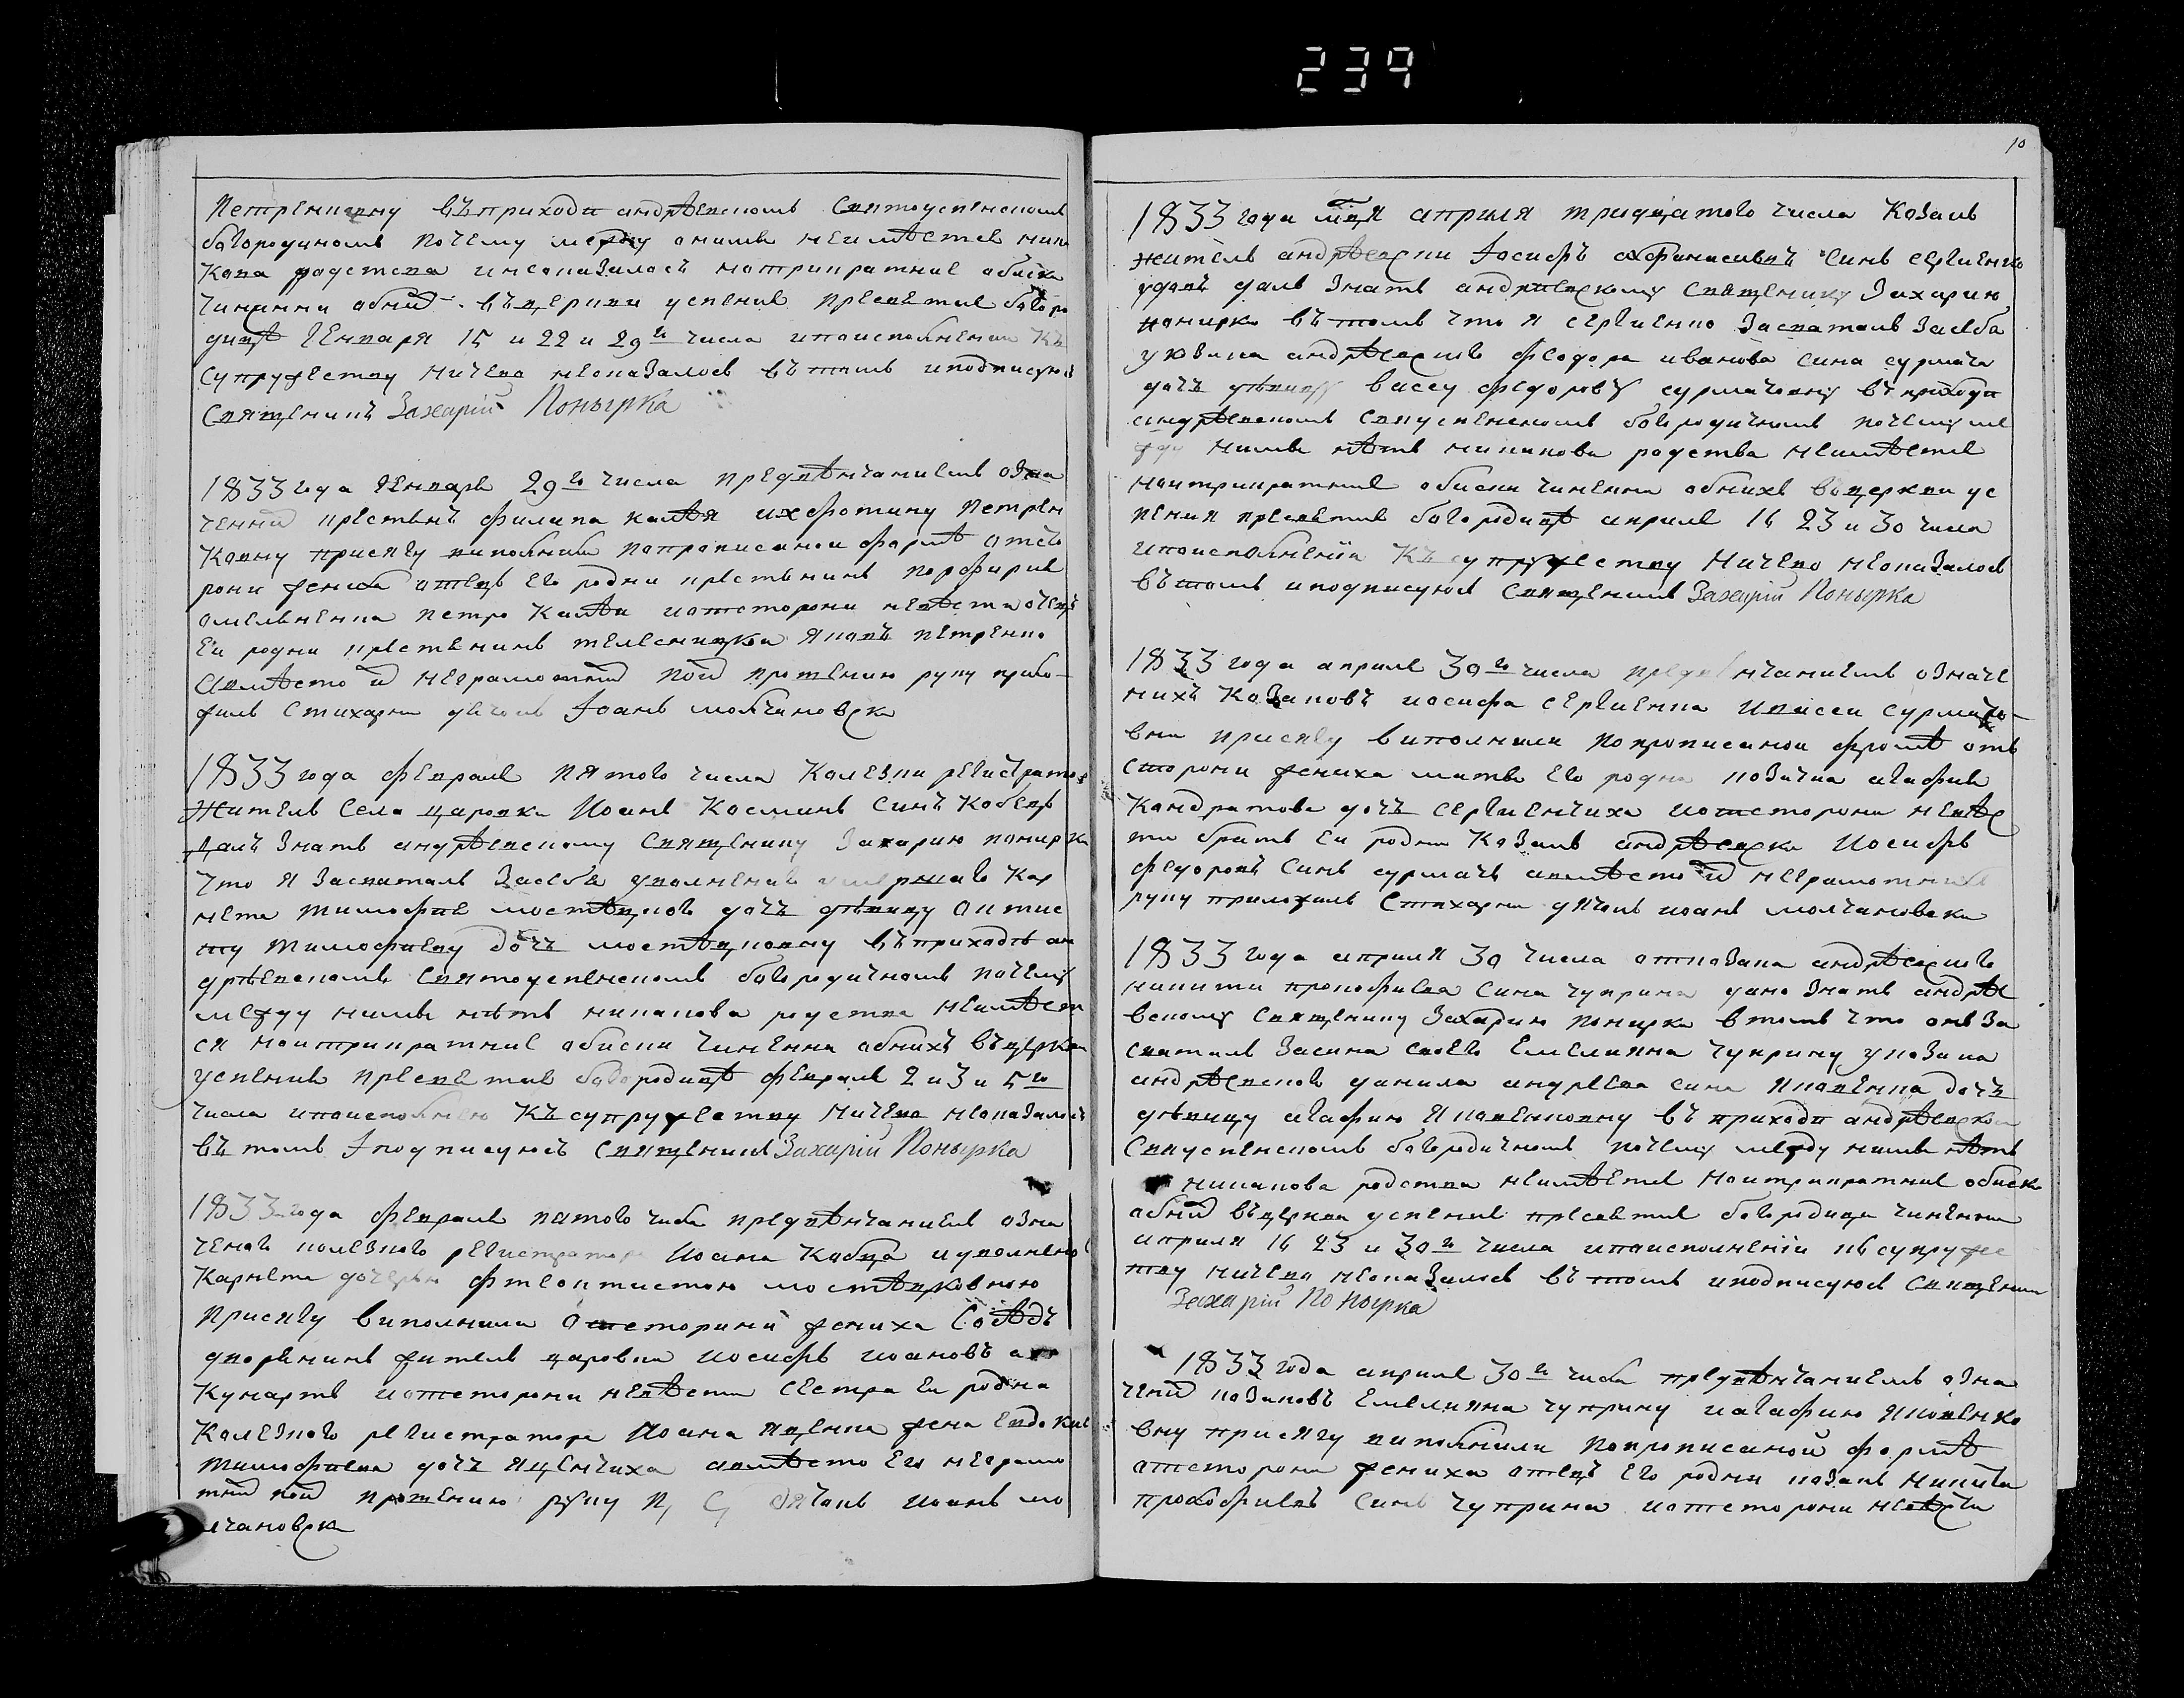 239
Петренковну въ приходи андрѣевскомъ Святоуспенскомъ
богородичномъ почему между онима неимѣетсѣ ника
кова родства инеоказалось натриикратние обиски
чиненни обних въцеркви успения пресветие богоро
дицѣ Генваря 15 и 22 и 29го числа ипоисполнении къ
супружеству ничево неоказалось въ томъ иподписуюсь
Священикъ Захарій Понырка
1833 года Генваря 29го числа предвѣнчаниемъ озна
ченних крестьянъ филипа калѣя ихфотину Петрен
ковну присягу виполнили попрописанои формѣ отсто
рони жениха отецъ его родни крестьнинъ порфирия
омельненка петро Калѣи иотсторони невѣсти отецъ
Еи родни крестьнинъ телесницкои яковъ петренко
авмѣсто их неграмотних поих прошению руку прило-
жилъ Стихарни дячокъ Іоанъ молчановски
1833 года февраля пятого числа Колезки регистраторъ
житель Села царовки Иоанъ Косминъ Синъ Кобецъ
далъ знать андрѣевскому Священику Захарию понирки
что я Засваталъ Засебѣ уволненаго умершаго Кор
нета тимофие мостѣцкого дочъ дѣвицу фитис
ту тимофиеву дочъ мостѣцковну въприходѣ ан
дрѣевскомъ Святоуспенскомъ богородичномъ почему
между нима нѣтъ никакова родства неимѣет
ся натриикратние обиски чиненна обнихъ въцеркви
успения пресветие богородицѣ февраля 2 и 3 и 5го
числа ипоисполнению Къ супружеству Ничево неоказалось
въ томъ Іподписуюсь Священикъ Захарій Понырка
1833 года февраля патого числа предвѣнчаниемъ озна
ченого колезкого регистратора Иоана Кобца иуволненого
Карнета дочерью фтеоктистою мостѣцковною
присягу виполнили отсторини жениха Сосѣдъ
дворянинъ житель царовки Иосифъ иоановъ
Кунартъ иотсторони невѣсти Сестра Еи родна
Колезкого регистратора Иоана яценка жена Евдокия
тимофиева дочъ яценчиха авмѣсто Его неграмо
тних поих прошению руку П, С, дячокъ Иоанъ мо
лчановски
10
1833 года мця априля тридцатого числа Козакъ
житель андрѣевски Іосифъ афанасиевъ синъ сергиенко
далъ знать андриевскому Священику Захарию
понирки въ томъ что я сергиенко Засваталъ Засебѣ
укозака андрѣевского феодора иванова сина сурмача
дочъ дѣвицу вассу федорову сурмачовну въ приходи
андрѣевскомъ Святуспенскомъ богородичномъ почему ме
жду нима нѣтъ никакова родства неимѣетсѣ
натриикратние обиски чиненни обнихъ въцеркви ус
пения пресветие богородицѣ априля 16 23 и 30 числа
ипоисполненїи Къ супружеству Ничево неоказалось
въ томъ иподписуюсь Священикъ Захарій Понырка
1833 года априля 30го числа предвѣнчаниемъ означе
нихъ Козаковъ иосифа сергиенка ивасси сурмачо-
вни присягу виполнили попрописанои формѣ отъ
стороны жениха мать Его родна козачка агафия
Кондратова дочъ сергиенчиха иотсторони невѣс
ти братъ Еи родни Козакъ андрѣевски Иосифъ
федоровъ Синъ сурмачъ авмѣсто их неграмотних
руку приложилъ Стихарни дячокъ иоанъ молчановски
1833 года априля 30 числа откозака андрѣевского
никити прокофиева Сина чуприна дано знать андрѣе
вскому Священику Захарию понирки в томъ что онъ За
сваталъ Засина своего Емелияна чуприну укозака
андрѣевского данила андреева сина яковенка дочъ
дѣвицу агафию яковенковну въ приходи андрѣевски
Святуспенскомъ богородичномъ почему между нима нѣтъ
никакова родства неимѣетсѣ натриикратние обиски
обних въцеркви успения пресветие богородици чиненни
априля 16 23 и 30го числа ипоисполненїи къ супруже
тву ничево неоказалось въ томъ иподписуюсь Священикъ
Захарій Понырка
1833 года априля 30го числа предвѣнчаниемъ озна
чених козаковъ Емелияна чуприну иагафию яковенко
вну присягу виполнили попрописаной формѣ
отсторони жениха отецъ Его родни козакъ никита
прокофиевъ Синъ чуприна иотсторони невѣсти